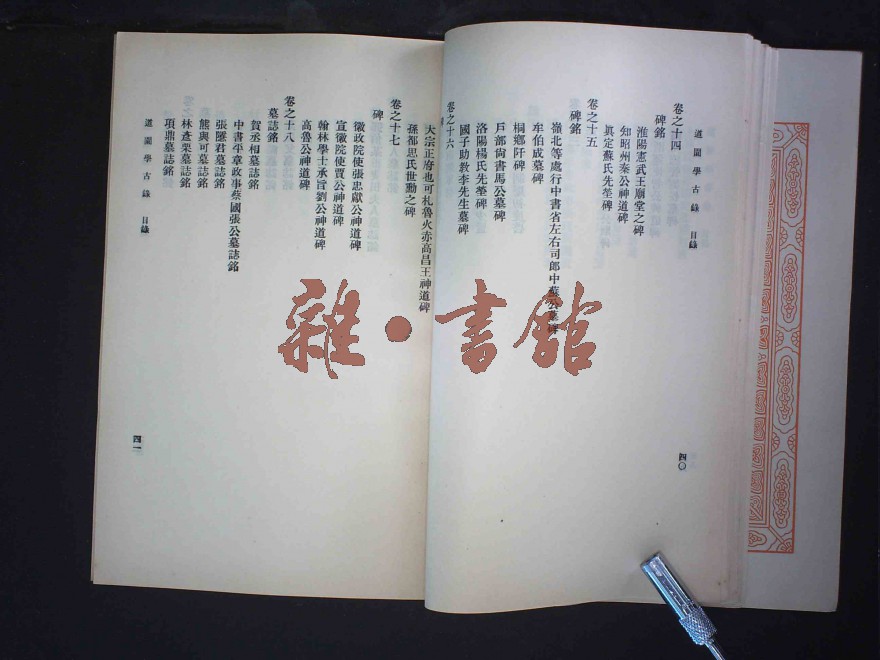 道園學古錄 目錄
卷之十四
碑銘
淮陽憲武王廟堂之碑
知昭州秦公神道碑
眞定蘇氏先塋碑
卷之十五
碑銘
嶺北等處行中書省左右司郎中蘇公墓碑
牟伯成墓碑
桐鄉阡碑
戶部尙書馬公墓碑
洛陽楊氏先塋碑
國子助教李先生墓碑
卷之十六
四〇
大宗正府也可札魯火赤高昌王神道碑
孫都思氏世勳之碑
卷之十七
碑
徽政院使張忠獻公神道碑
宣徽院使賈公神道碑
翰林學士承旨劉公神道碑
高魯公神道碑
卷之十八
墓誌銘
賀丞相墓誌銘
中書平章政事蔡國張公墓誌銘
張隱君墓誌銘
熊與可墓誌銘
林彥栗墓誌銘
項鼎墓誌銘
道園學古錄 目錄
四一
雜·書館